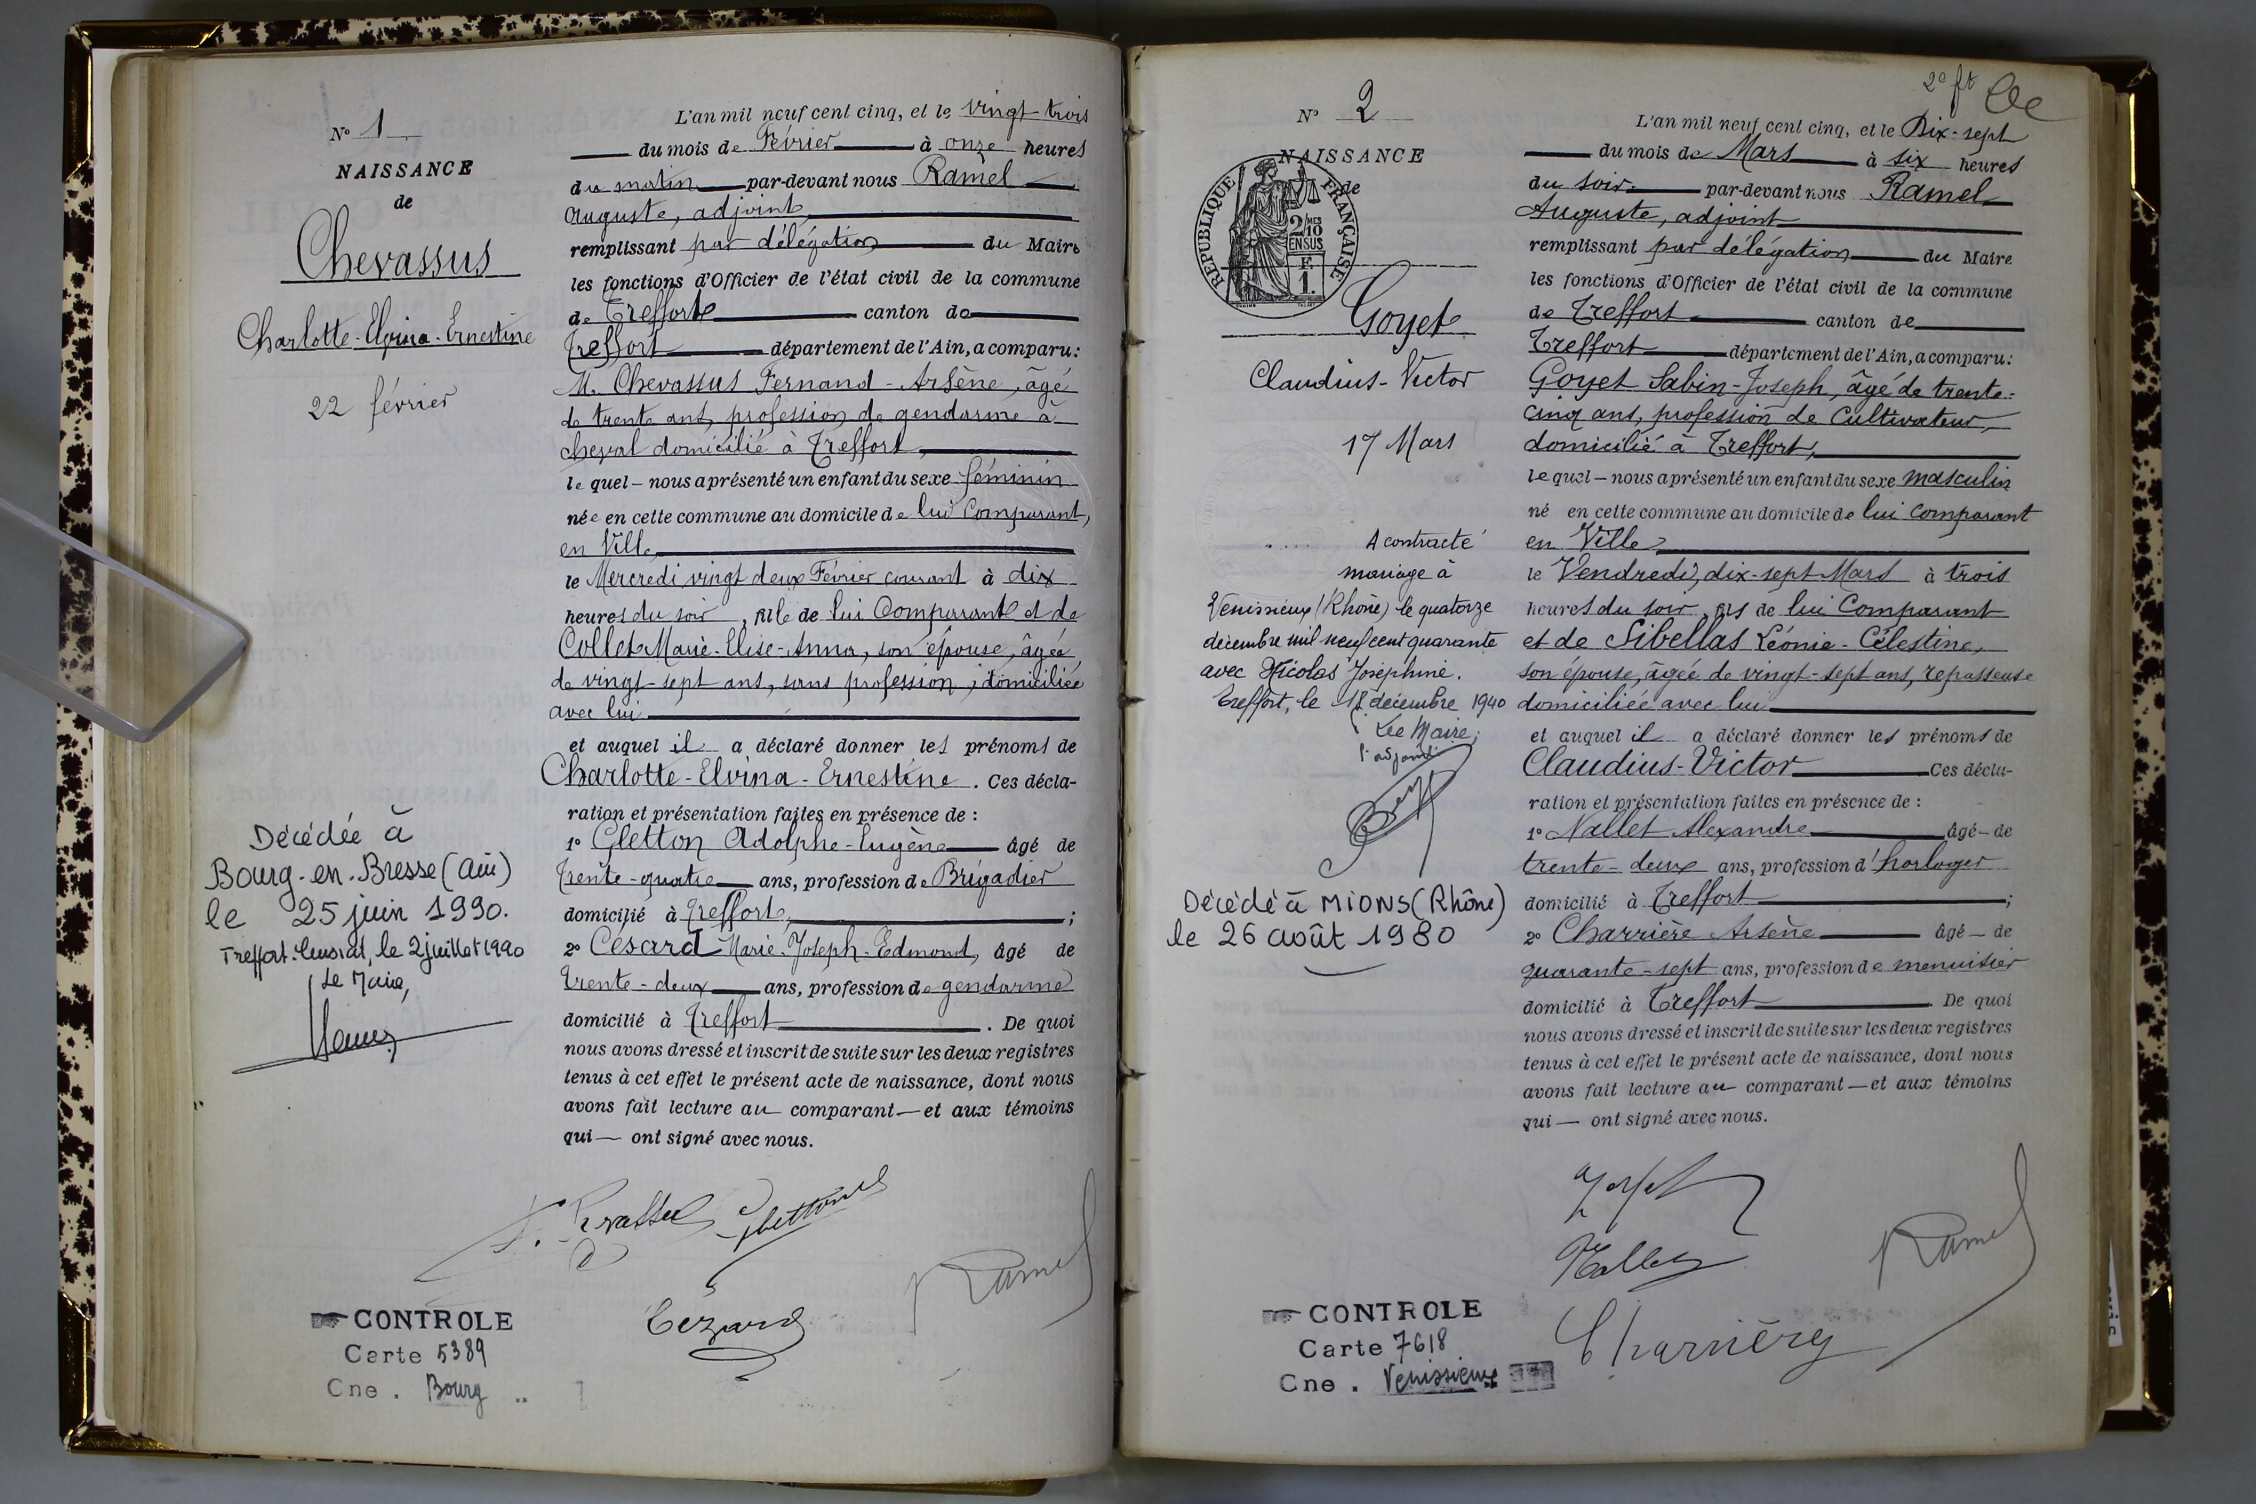 N° 1
NAISSANCE
de
Chevassus
Charlotte-Elvina-Ernestine
22 février
Décédée à
Bourg-en-Bresse (Ain)
le 25 juin 1990.
Treffort-Cuisiat, le 2 juillet 1990
Le Maire,
L'an mil neuf cent cinq, et le vingt-trois
du mois de Février à onze heures
du matin par-devant nous Ramel
Auguste, adjoint
remplissant par délégation du Maire
les fonctions d'Officier de l'état civil de la commune
de Treffort canton de
Treffort département de l'Ain, a comparu:
M. Chevassus Fernand-Arsène, âgé
de trente ans, profession de gendarme à
cheval domicilié à Treffort,
lequel - nous a présenté un enfant du sexe féminin
née en cette commune au domicile de lui Comparant,
en Ville
le Mercredi vingt deux Février courant à dix
heures du soir, fille de lui Comparant et de
Collet Marie-Elise-Anna, son épouse, âgée
de vingt-sept ans, sans profession, domiciliée
avec lui
et auquel il a déclaré donner les prénoms de
Charlotte-Elvina-Ernestine. Ces décla-
ration et présentation faites en présence de :
1° Gletton Adolphe-Eugène âgé de
trente-quatre ans, profession de Brigadier
domicilié à Treffort, ;
2° Césard Marie-Joseph-Edmond, âgé de
trente-deux ans, profession de gendarme
domicilié à Treffort . De quoi
nous avons dressé et inscrit de suite sur les deux registres
tenus à cet effet le présent acte de naissance, dont nous
avons fait lecture au comparant — et aux témoins
qui — ont signé avec nous.
Gletton
Cézard
Ramel
CONTROLE
Carte 5389
Cne . Bourg
2e ft
N° 2
NAISSANCE
de
RÉPUBLIQUE FRANÇAISE
2/10 MES
EN SUS
F.
1.
Goyet
Claudius-Victor
17 Mars
A contracté
mariage à
Vénissieux (Rhône) le quatorze
décembre mil neuf cent quarante
avec Nicolas Joséphine.
Treffort, le 18 décembre 1940
Le Maire,
l'adjoint
Décédé à MIONS (Rhône)
le 26 août 1980
L'an mil neuf cent cinq, et le Dix-sept
du mois de Mars à six heures
du soir par-devant nous Ramel
Auguste, adjoint
remplissant par délégation du Maire
les fonctions d'Officier de l'état civil de la commune
de Treffort canton de
Treffort département de l'Ain, a comparu:
Goyet Sabin-Joseph, âgé de trente-
cinq ans, profession de Cultivateur,
domicilié à Treffort,
lequel — nous a présenté un enfant du sexe masculin
né en cette commune au domicile de lui comparant
en Ville
le Vendredi, dix-sept Mars à trois
heures du soir, fils de lui Comparant
et de Sibellas Léonie-Célestine,
son épouse, âgée de vingt-sept ans, repasseuse
domiciliée avec lui
et auquel il a déclaré donner les prénoms de
Claudius-Victor Ces décla-
ration et présentation faites en présence de :
1° Nallet Alexandre âgé — de
trente-deux ans, profession d'horloger
domicilié à Treffort ;
2° Charrière Arsène âgé — de
quarante-sept ans, profession de menuisier
domicilié à Treffort . De quoi
nous avons dressé et inscrit de suite sur les deux registres
tenus à cet effet le présent acte de naissance, dont nous
avons fait lecture au comparant — et aux témoins
qui — ont signé avec nous.
Nallet
Ramel
Charrière
CONTROLE
Carte 7618
Cne . Vénissieux